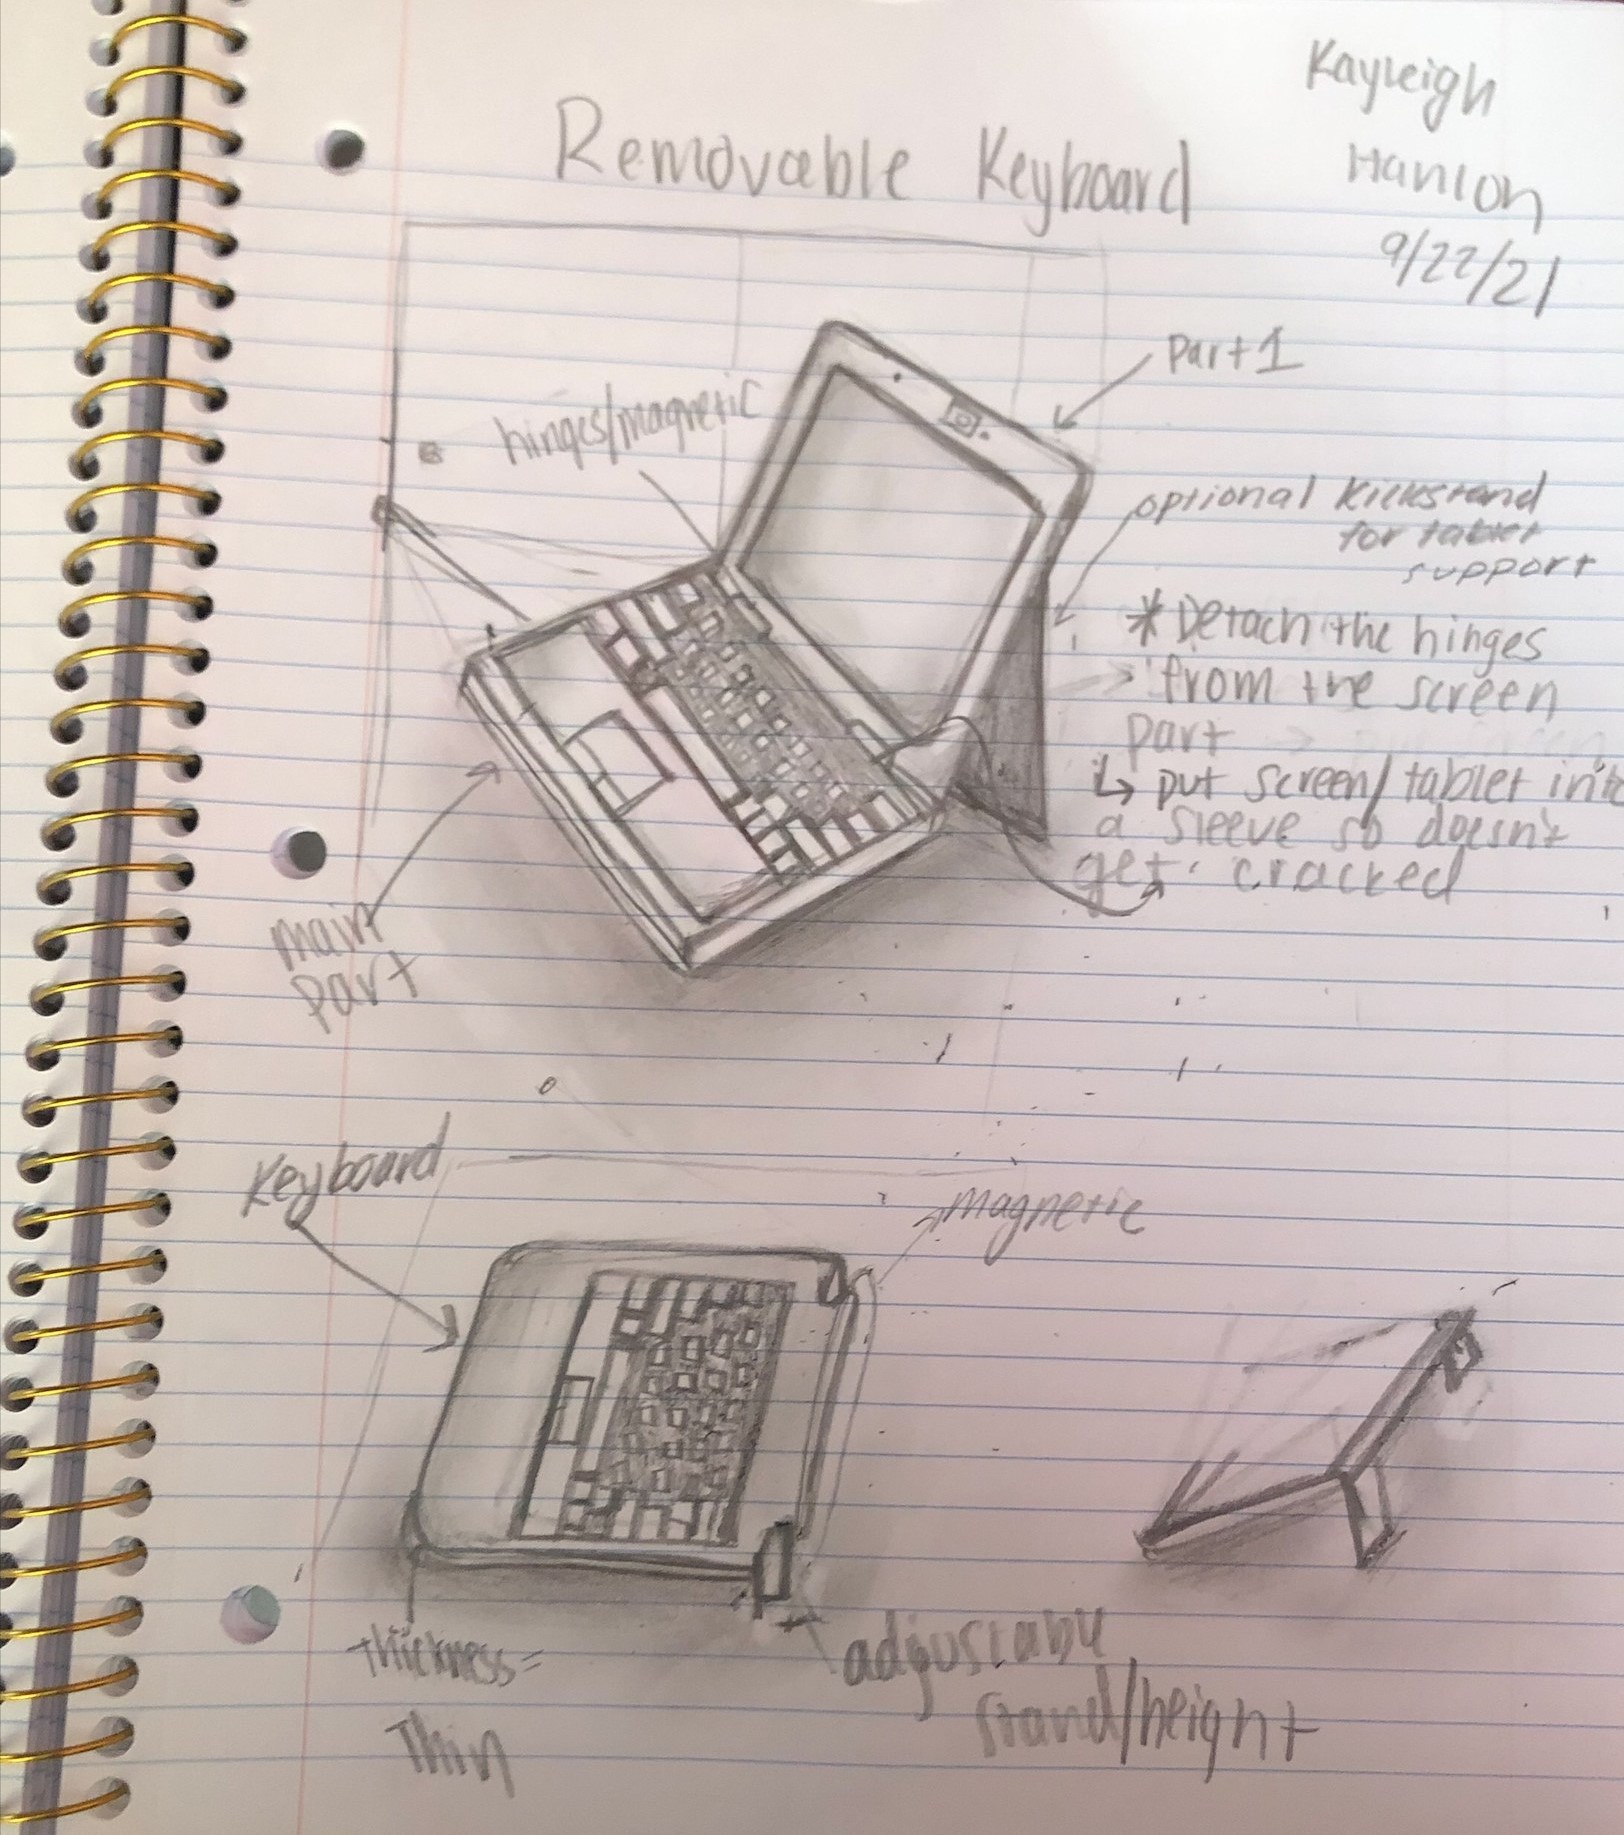 Kayleigh
Hanlon
9/22/21
Removable Keyboard
Part 1
hinges/magnetic
optional kickstand
for tablet
support
* Detach the hinges
from the screen
part
↳ put screen/tablet into
a sleeve so doesn't
get cracked
main
part
Keyboard
magnetic
thickness=
Thin
adjustable
stand/height